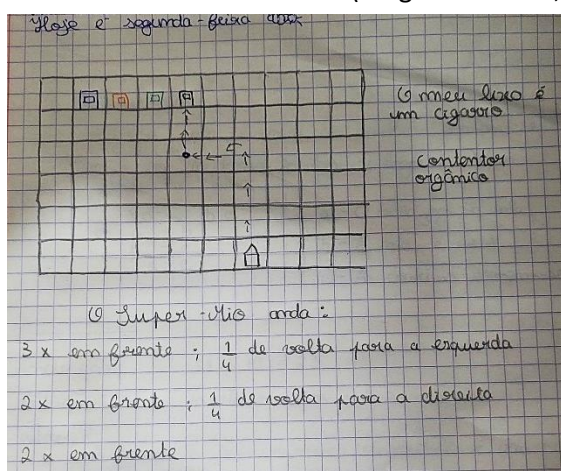 Hoje é segunda-feira
O meu lixo é
um cigarro
contentor
orgânico
O Super-Mio anda:
3 x em frente ; 1/4 de volta para a esquerda
2 x em frente ; 1/4 de volta para a direita
2 x em frente